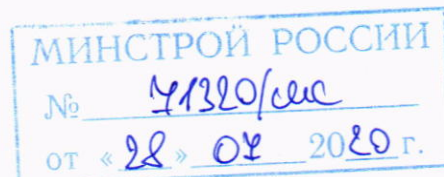 МИНСТРОЙ РОССИИ
№ 71320/смс
от «28» 07 2020 г.